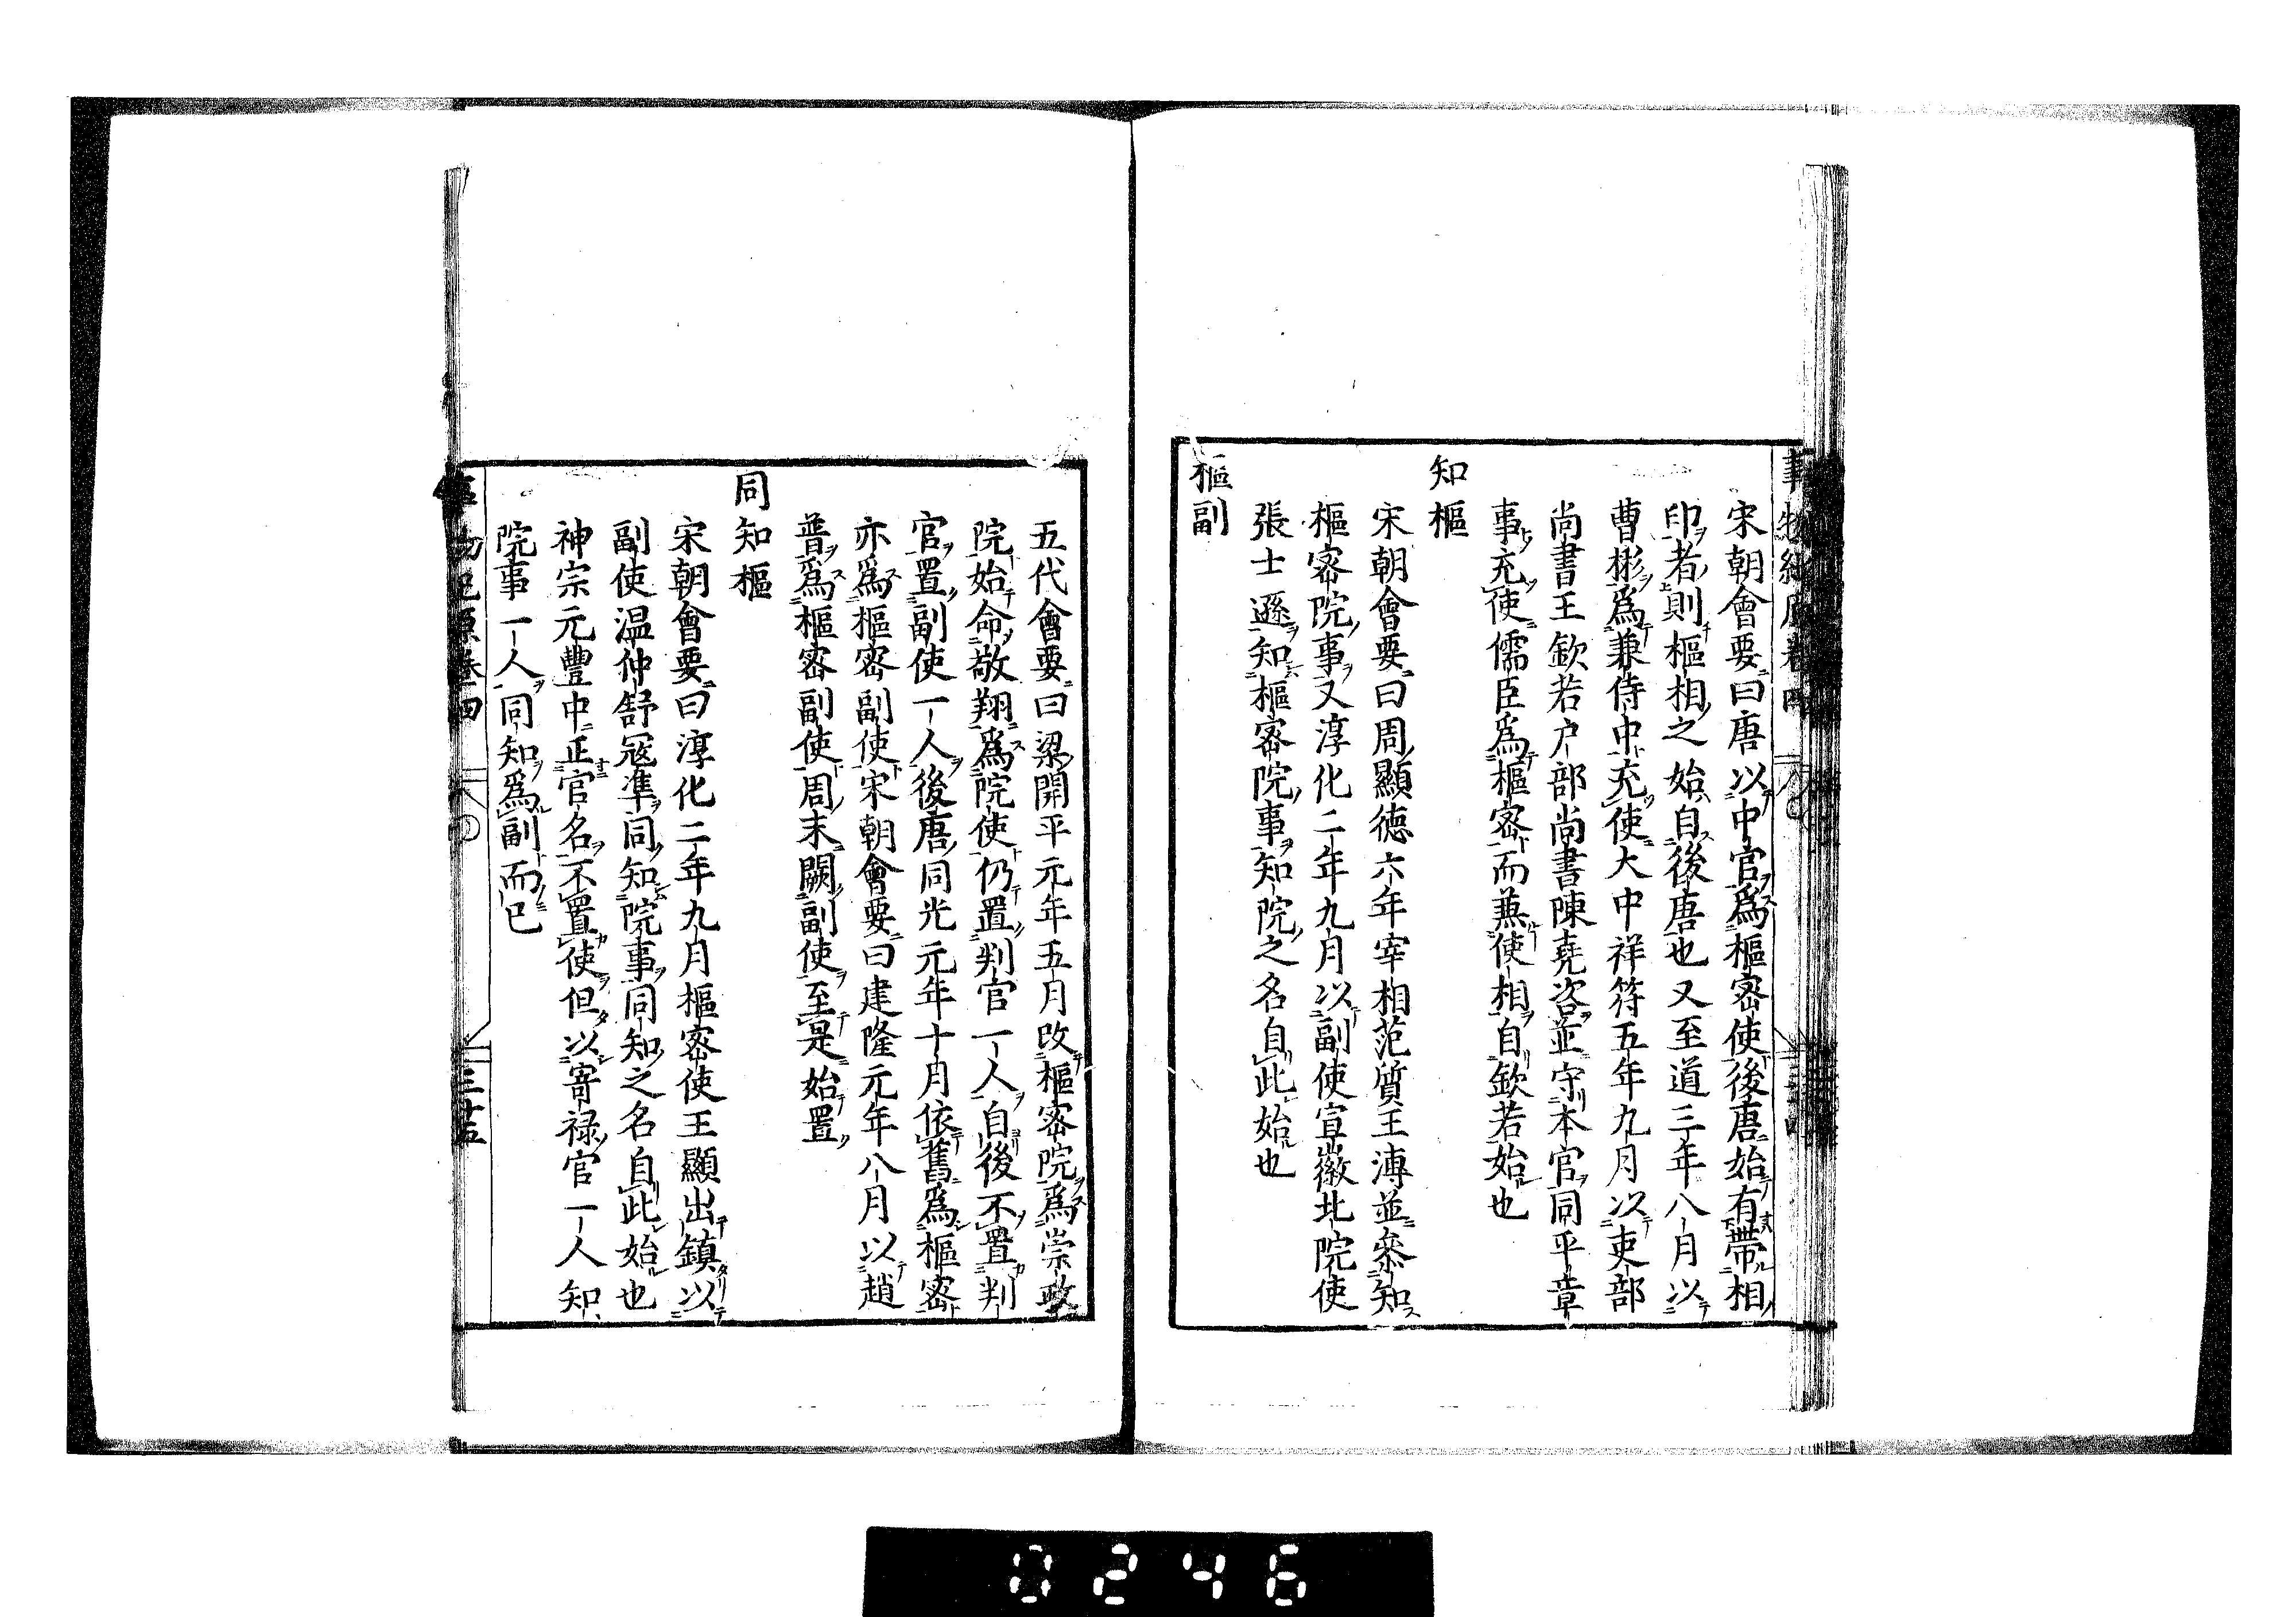 宋朝會要曰唐以中官爲樞密使後唐始有帶相
印者則樞相之始自後唐也又至道三年八月以
曹彬爲兼侍中充使大中祥符五年九月以吏部
尚書王欽若户部尚書陳堯咨並守本官同平章
事充使儒臣爲樞密而兼使相自欽若始也
知樞
宋朝會要曰周顯德六年宰相范質王溥並叅知
樞密院事又淳化二年九月以副使宣徽北院使
張士遜知樞密院事知院之名自此始也
樞副
五代會要曰梁開平元年五月改樞密院爲崇政
院始命敬翔爲院使仍置判官一人自後不置判
官置副使一人後唐同光元年十月依舊爲樞密
亦爲樞密副使宋朝會要曰建隆元年八月以趙
普爲樞密副使周末闕副使至是始置
同知樞
宋朝會要曰淳化二年九月樞密使王顯出鎮以
副使温仲舒冦準同知院事同知之名自此始也
神宗元豐中正官名不置使但以寄禄官一人知
院事一人同知爲副而已
物紀原卷四
三十五
0246